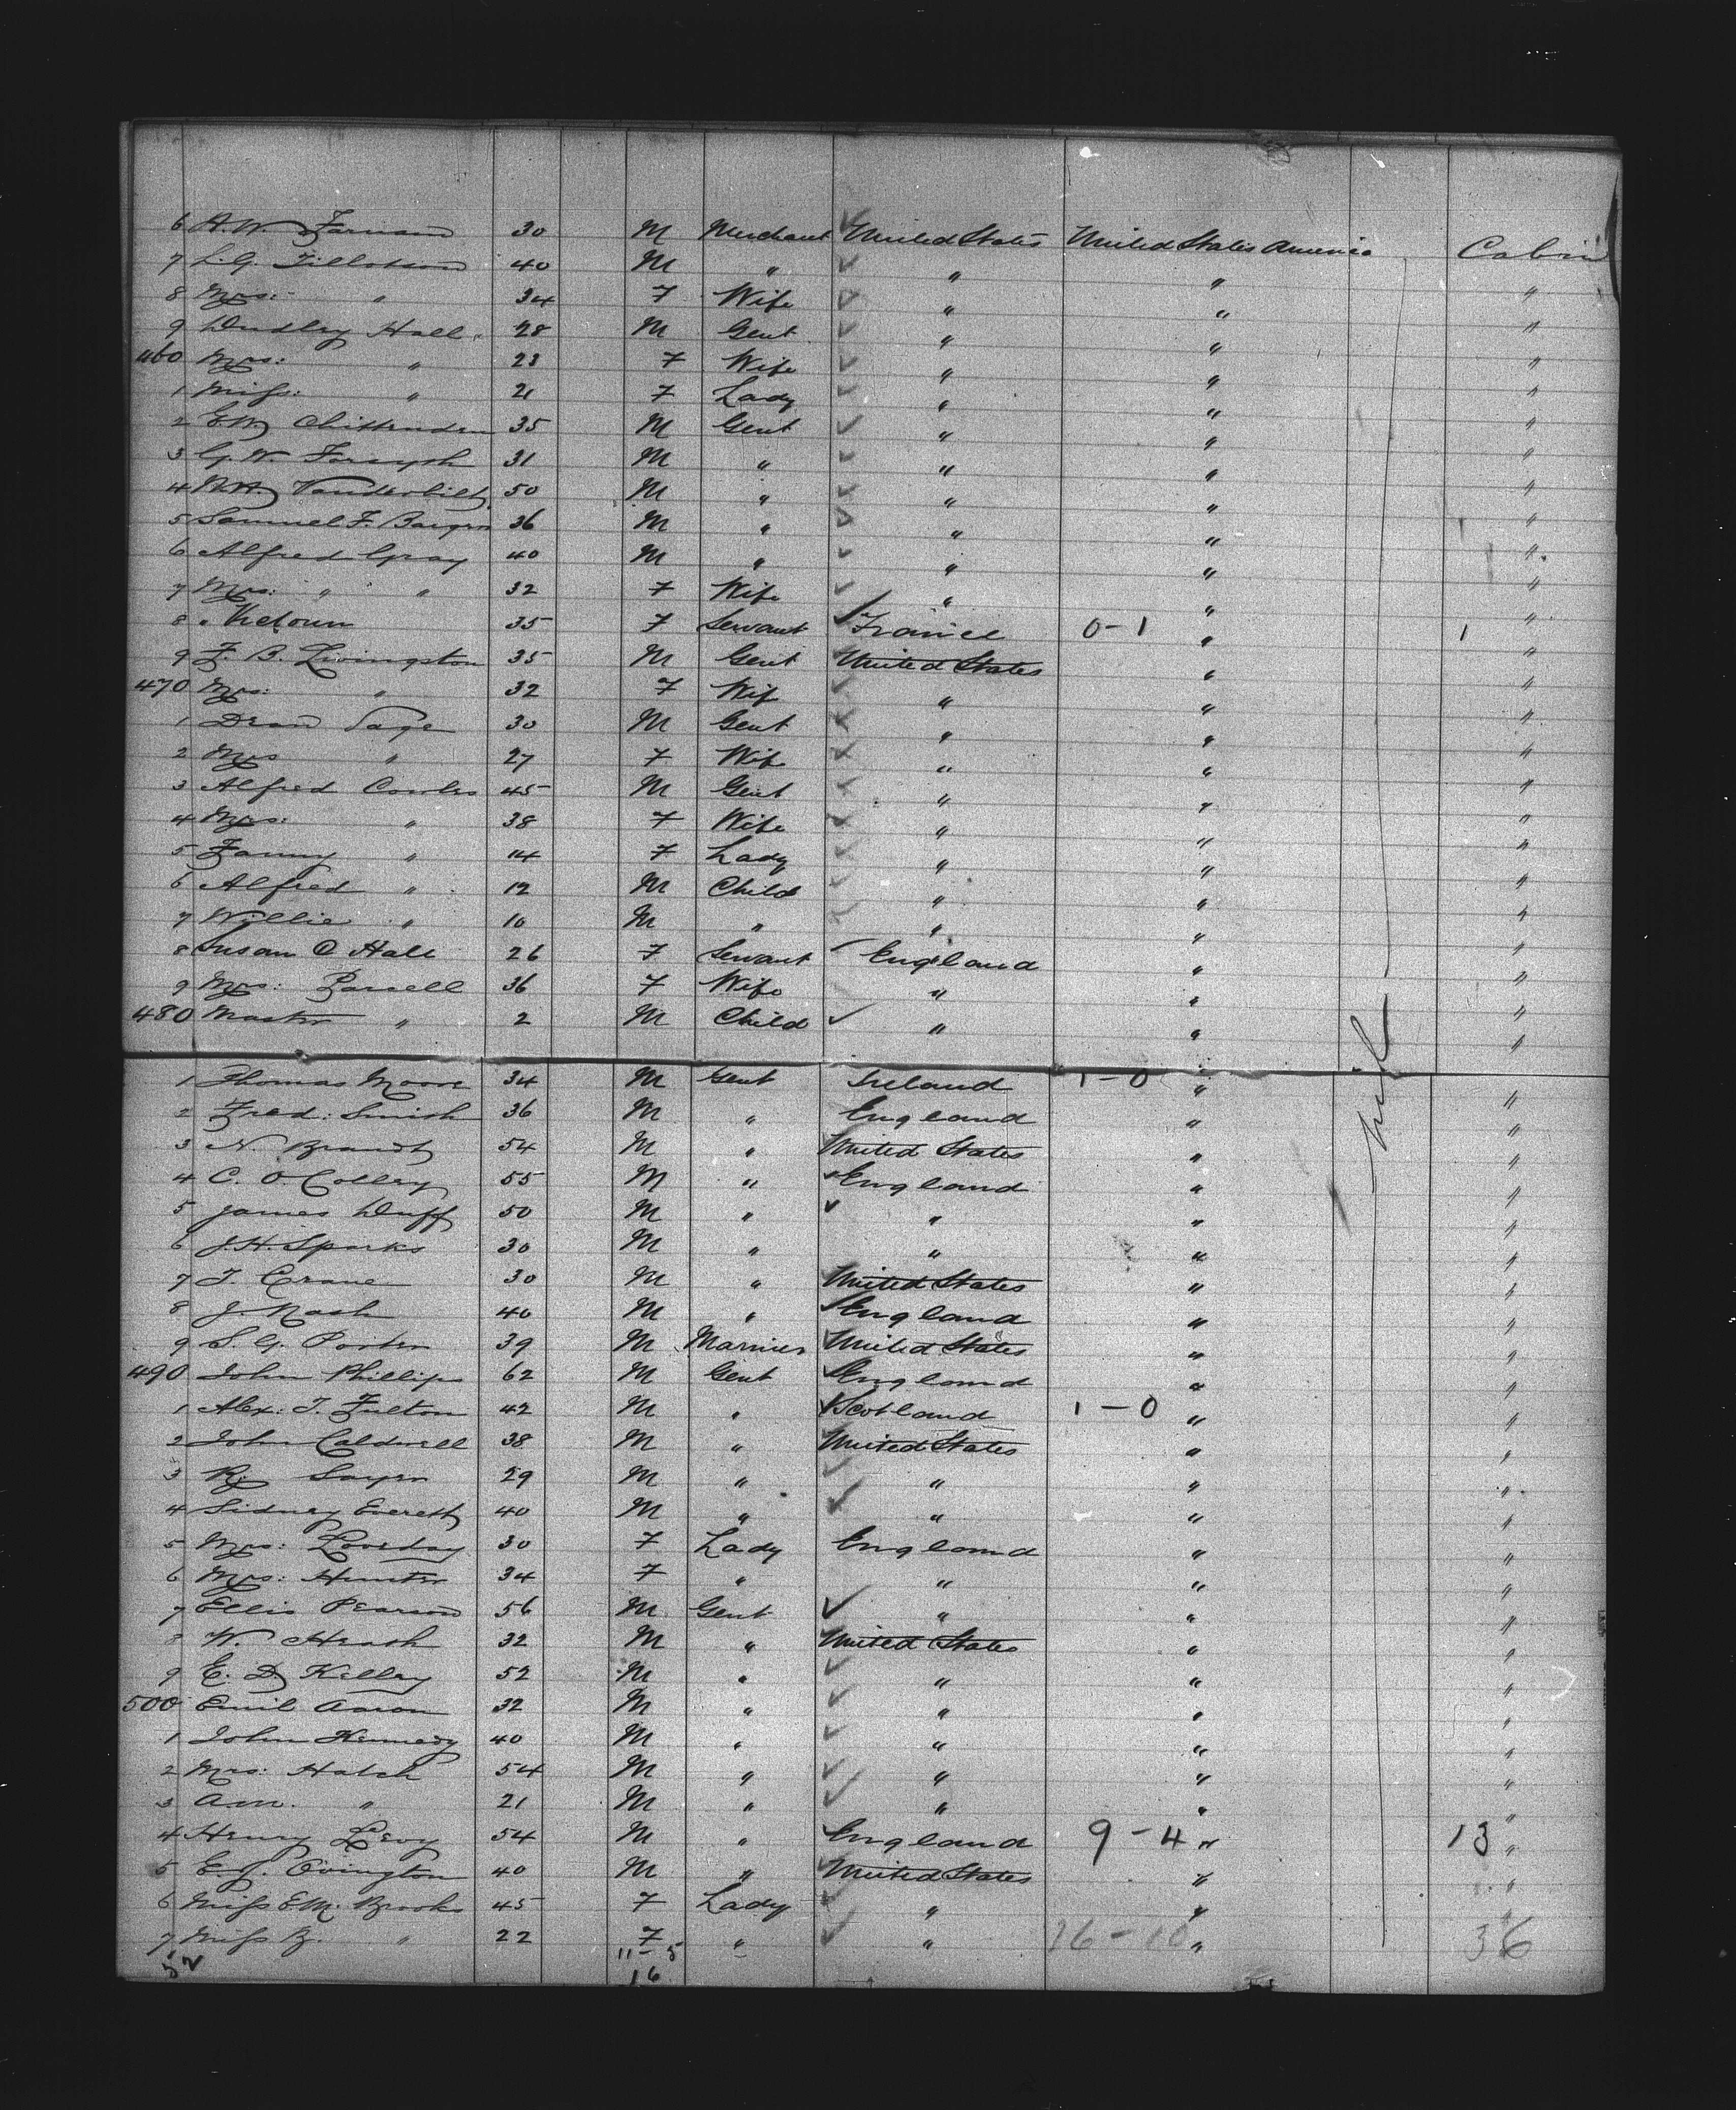 6 A.W. Farnam 30 M Merchant United States United States America Cabin
7 L.G. Tillotson 40 M " " " "
8 Mrs: " 34 F Wife " " "
9 Dudley Hall 28 M Gent " " "
460 Mrs: " 23 F Wife " " "
1 Miss: " 21 F Lady " " "
2 Chittenden 35 M Gent " " "
3 G.W. Forsyth 31 M " " " "
4 Vanderbilt 50 M " " " "
5 Samuel F. Barger 36 M " " " "
6 Alfred Gray 40 M " " " "
7 Mrs: " " 32 F Wife " " "
8 " 35 F Servant France 0-1 " 1 "
9 F. B. Livingston 35 M Gent United States " "
470 Mrs: " 32 F Wif " " "
1 Dean Sage 30 M Gent " " "
2 Mrs " 27 F Wife " " "
3 Alfred Cowles 45 M Gent " " "
4 Mrs: " 38 F Wife " " "
5 Fanny " 14 F Lady " " "
6 Alfred " 12 M Child " " "
7 Willie " 10 M " " " "
8 Susan Hall 26 F Servant England " "
9 Mrs: 36 F Wife " " "
480 Master " 2 M Child " " "
1 Thomas Moore 34 M Gent Ireland 1-0 " "
2 Fred: Smith 36 M " England " "
3 N. Brandt 54 M " United States " "
4 C. O Colley 55 M " England " "
5 James Duff 50 M " " " "
6 J.H. Sparks 30 M " " " "
7 T. Crane 30 M " United States " "
8 J. Nash 40 M " England " "
9 S. G. Porter 39 M Marriner United States " "
490 John Phillips 62 M Gent England " "
1 Alex: T. Fulton 42 M " Scotland 1-0 " "
2 John Caldwell 38 M " United States " "
3 29 M " " " "
4 Sidney Everett 40 M " " " "
5 Mrs: 30 F Lady England " "
6 Mrs: Hunter 34 F " " " "
7 Ellis Pearson 56 M Gent " " "
8 W. Heath 32 M " United States " "
9 E. D. Kelley 52 M " " " "
500 Emil Aaron 32 M " " " "
1 John Kennedy 40 M " " " "
2 Mrs: Hatch 54 M " " " "
3 " 21 M " " " "
4 Henry Levy 54 M " England 9-4 " 13 "
5 Ovington 40 M " United States " "
6 Miss E.M. Brooks 45 F Lady " " "
7 Miss B. " 22 F " " 26-10 " 36
52 11-5
16
nil